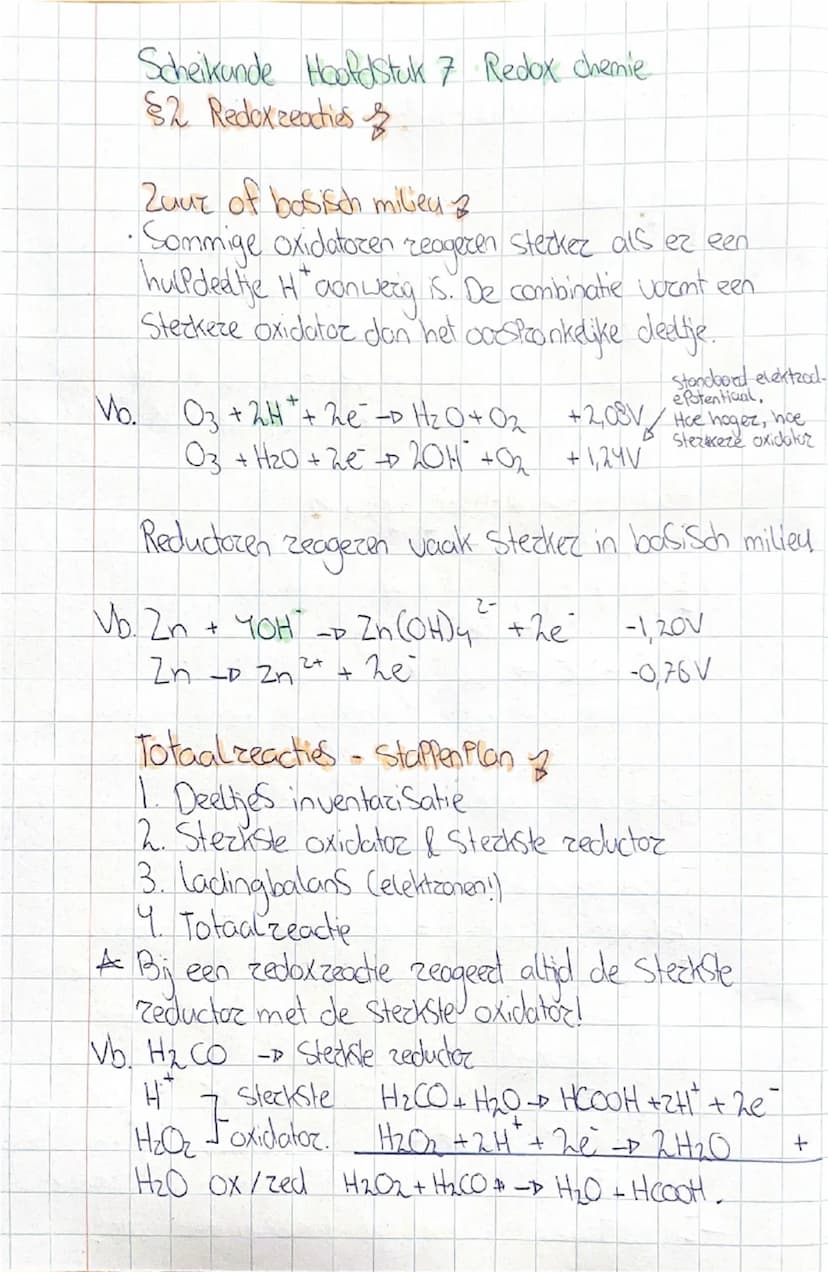 Scheikunde Hoofdstuk 7 Redox chemie
§2 Redoxreacties
Zuur of basisch milieu
· Sommige oxidatoren reageren sterker als er een
hulpdeeltje H⁺ aanwezig is. De combinatie vormt een
sterkere oxidator dan het oorspronkelijke deeltje.
Vb. O₃ + 2H⁺ + 2e⁻ → H₂O + O₂ +2,08V
standaard elektrod-
epotentiaal,
Hoe hoger, hoe
sterkere oxidator
O₃ + H₂O + 2e⁻ → 2OH⁻ + O₂ +1,24V
Reductoren reageren vaak sterker in basisch milieu
Vb. Zn + 4OH⁻ → Zn(OH)₄²⁻ + 2e⁻ -1,20V
Zn → Zn²⁺ + 2e⁻ -0,76V
Totaalreacties - Stappenplan
1. Deeltjes inventarisatie
2. Sterkste oxidator & sterkste reductor
3. Ladingbalans (elektronen!)
4. Totaalreactie
Bij een redoxreactie reageert altijd de sterkste
reductor met de sterkste oxidator!
Vb. H₂CO → sterkste reductor
H⁺ sterkste H₂CO + H₂O → HCOOH + 2H⁺ + 2e⁻
H₂O₂ oxidator. H₂O₂ + 2H⁺ + 2e⁻ → 2H₂O +
H₂O ox/red H₂O₂ + H₂CO → H₂O + HCOOH.